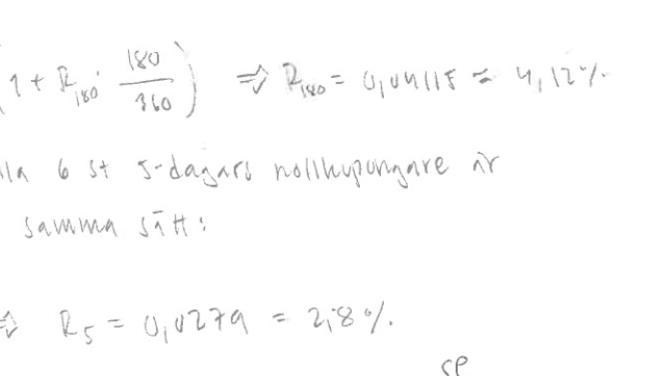 (1 + R₁₈₀ · 180/360) ⇒ R₁₈₀ = 0,04115 ≈ 4,12%.
la 6 st 5-dagars nollkupongare är
samma sätt:
⇒ R₅ = 0,0279 = 2,8%.